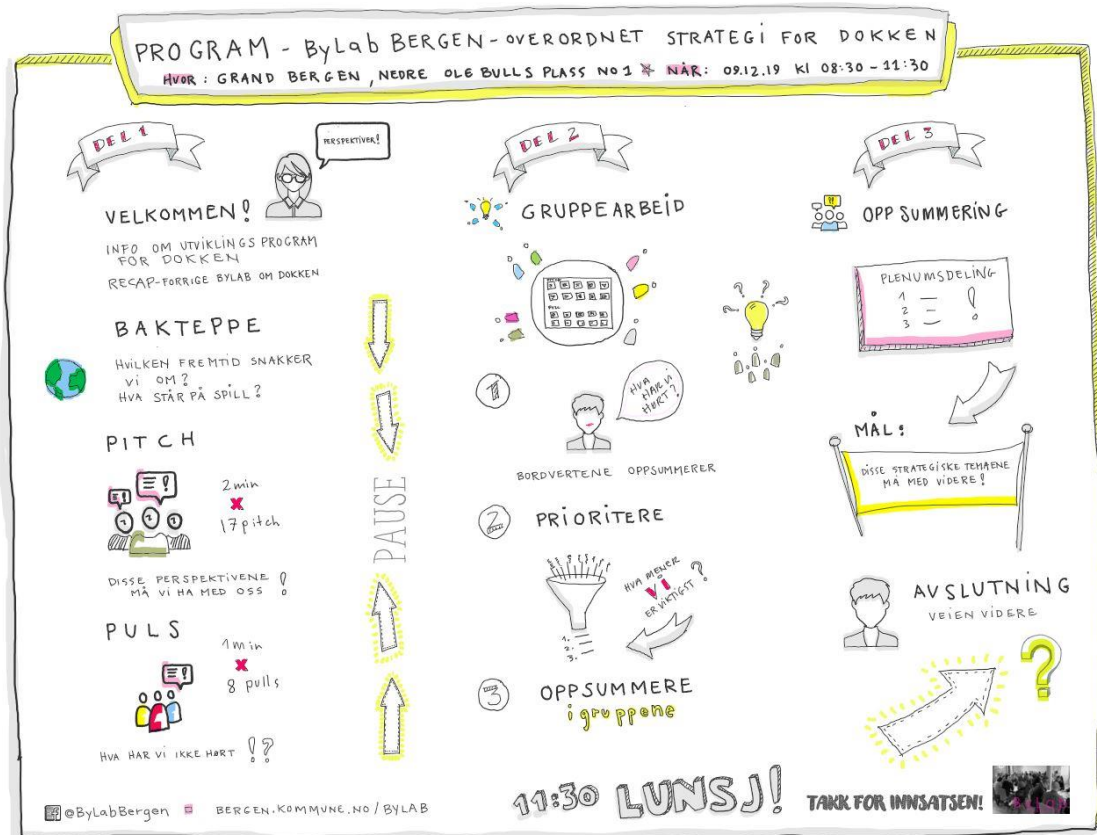 PROGRAM - ByLab BERGEN - OVERORDNET STRATEGI FOR DOKKEN
HVOR: GRAND BERGEN, NEDRE OLE BULLS PLASS NO 1 NÅR: 09.12.19 Kl 08:30 - 11:30
DEL 1
PERSPEKTIVER!
VELKOMMEN!
INFO OM UTVIKLINGSPROGRAM
FOR DOKKEN
RECAP-FORRIGE BYLAB OM DOKKEN
BAKTEPPE
HVILKEN FREMTID SNAKKER
VI OM?
HVA STÅR PÅ SPILL?
PITCH
2min
x
17 pitch
DISSE PERSPEKTIVENE
MÅ VI HA MED OSS!
PULS
1min
x
8 pulls
HVA HAR VI IKKE HØRT !?
@ByLabBergen
BERGEN.KOMMUNE.NO/BYLAB
PAUSE
DEL 2
GRUPPEARBEID
1
HVA
HAR VI
HØRT?
BORDVERTENE OPPSUMMERER
2
PRIORITERE
HVA MENER
VI
ER VIKTIGST?
1.
2.
3.
3
OPPSUMMERE
i gruppene
11:30 LUNSJ!
DEL 3
OPPSUMMERING
PLENUMSDELING
1
2
3
!
MÅL:
DISSE STRATEGISKE TEMAENE
MÅ MED VIDERE!
AVSLUTNING
VEIEN VIDERE
?
TAKK FOR INNSATSEN!
BYLAB